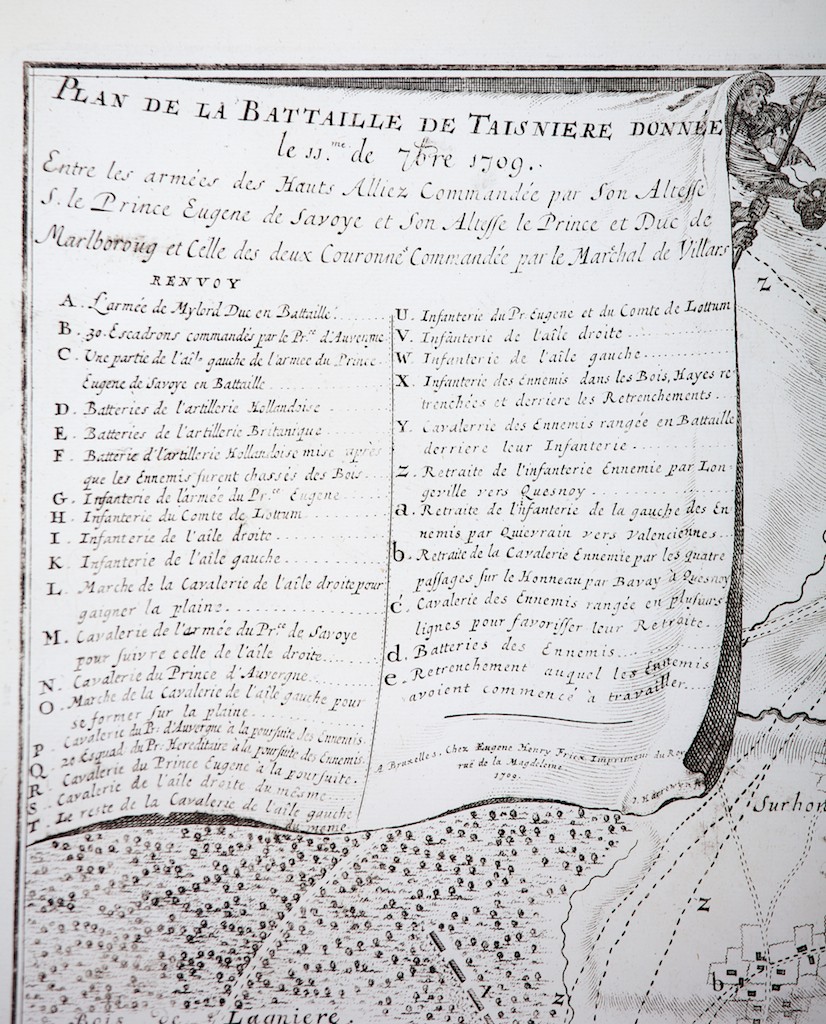 PLAN DE LA BATTAILLE DE TAISNIERE DONNÉE
le 11.me de 7bre 1709.
Entre les armées des Hauts Alliez Commandée par Son Altesse
S. le Prince Eugene de Savoye et Son Altesse le Prince et Duc de
Marlboroug et Celle des deux Couronnes Commandée par le Marechal de Villars
RENVOY
A. L'armée de Mylord Duc en Battaille
B. 30. Escadrons commandés par le Pr.ce d'Auvernne
C. Une partie de l'aile gauche de l'armée du Prince
Eugene de Savoye en Battaille
D. Batteries de l'artillerie Hollandoise
E. Batteries de l'artillerie Britanique
F. Batterie d'artillerie Hollandoise mise après
que les Ennemis furent chassés des Bois
G. Infanterie de l'armée du Pr.ce Eugene
H. Infanterie du Comte de Lottum
I. Infanterie de l'aîle droite
K. Infanterie de l'aîle gauche
L. Marche de la Cavalerie de l'aîle droite pour
gaigner la plaine
M. Cavalerie de l'armée du Pr.ce de Savoye
pour suivre celle de l'aîle droite
N. Cavalerie du Prince d'Auvergne
O. Marche de la Cavalerie de l'aîle gauche pour
se former sur la plaine
P. Cavalerie du Pr. d'Auvergne à la poursuite des Ennemis
Q. 20 Esquad du Pr. Hereditaire à la poursuite des Ennemis
R. Cavalerie du Prince Eugene à la poursuite.
S. Cavalerie de l'aîle droite du mesme
T. Le reste de la Cavalerie de l'aîle gauche
du meme
U. Infanterie du Pr. Eugene et du Comte de Lottum
V. Infanterie de l'aîle droite
W. Infanterie de l'aîle gauche
X. Infanterie des Ennemis dans les Bois, Hayes re
trenchées et derriere les Retrenchements
Y. Cavalerrie des Ennemis rangée en Battaille
derriere leur Infanterie
Z. Retraite de l'infanterie Ennemie par Lon-
geville vers Quesnoy
a. Retraite de l'infanterie de la gauche des En
nemis par Quievrain vers Valenciennes
b. Retraite de la Cavalerie Ennemie par les quatre
passages sur le Honneau par Bavay à Quesnoy
c. Cavalerie des Ennemis rangée en plusuars
lignes pour favorisser leur Retraite
d. Batteries des Ennemis
e. Retrenchement auquel les Ennemis
avoient commencé à travailler
A Bruxelles, Chez Eugene Henry Fricx Imprimeur du Roy
ruë de la Magdeleine
1709.
J. Harrewyn
Z
Surhon
Z
b
Z
Bois de Lagniere.